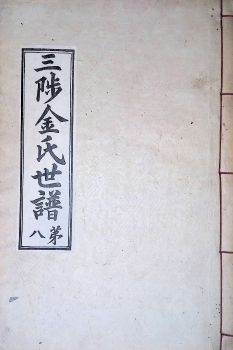 三陟金氏世譜
弟八